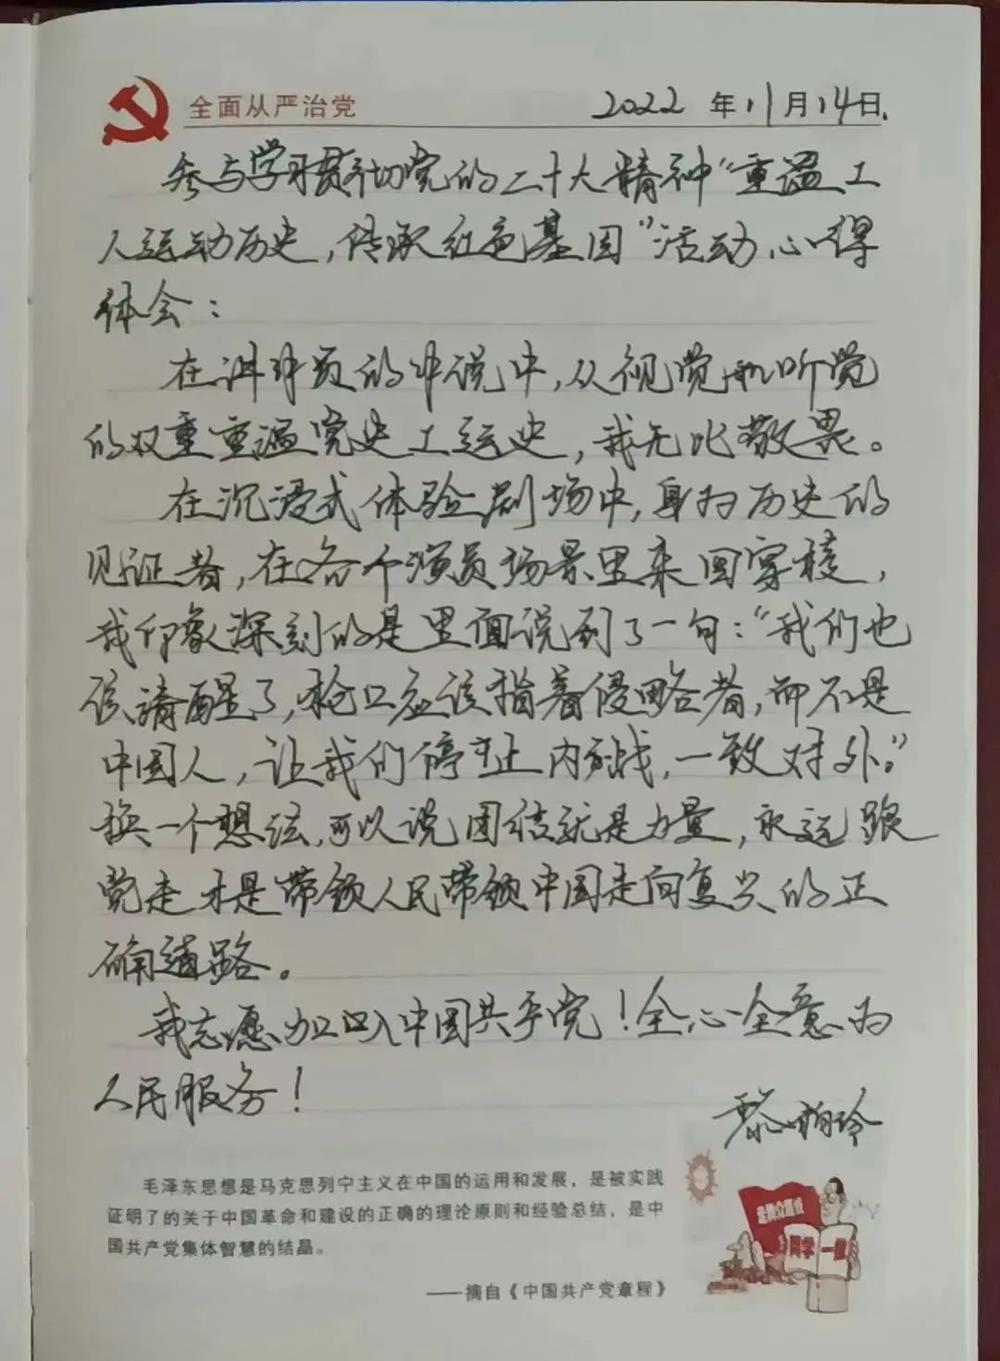 全面从严治党
2022 年 11月 14日.
参与学习贯彻党的二十大精神“重温工
人运动历史，传承红色基因”活动心得
体会：
在讲解员的解说中，从视觉和听觉
的双重重温党史工运史，我无比敬畏。
在沉浸式体验剧场中，身为历史的
见证者，在各个演员场景里来回穿梭，
我印象深刻的是里面说到了一句：“我们也
该清醒了，枪口应该指着侵略者，而不是
中国人，让我们停止内战，一致对外。”
换一个想法，可以说团结就是力量，永远跟
党走才是带领人民带领中国走向复兴的正
确道路。
我志愿加入中国共产党！全心全意为
人民服务！
黎柏玲
毛泽东思想是马克思列宁主义在中国的运用和发展，是被实践
证明了的关于中国革命和建设的正确的理论原则和经验总结，是中
国共产党集体智慧的结晶。
——摘自《中国共产党章程》